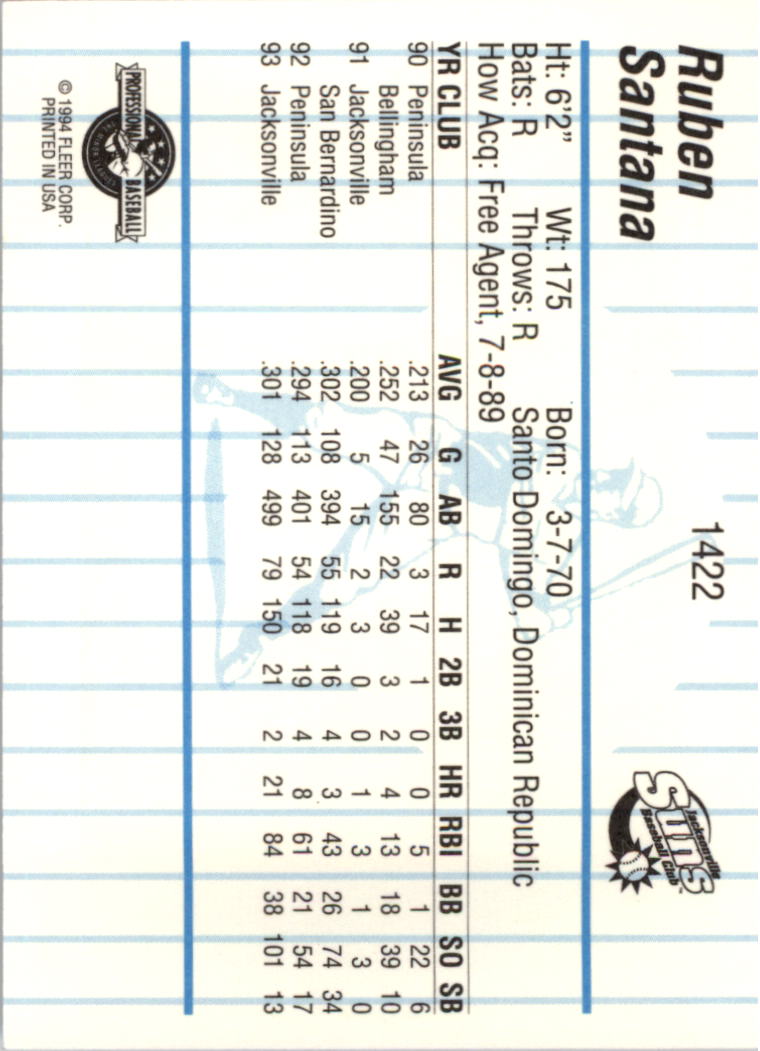 Ruben
Santana
1422
Jacksonville
Suns
Baseball Club
Ht: 6'2" Wt: 175 Born: 3-7-70
Bats: R Throws: R Santo Domingo, Dominican Republic
How Acq: Free Agent, 7-8-89
YR CLUB AVG G AB R H 2B 3B HR RBI BB SO SB
90 Peninsula .213 26 80 3 17 1 0 0 5 1 22 6
Bellingham .252 47 155 22 39 3 2 4 13 18 39 10
91 Jacksonville .200 5 15 2 3 0 0 1 3 1 3 0
San Bernardino .302 108 394 55 119 16 4 3 43 26 74 34
92 Peninsula .294 113 401 54 118 19 4 8 61 21 54 17
93 Jacksonville .301 128 499 79 150 21 2 21 84 38 101 13
PROFESSIONAL BASEBALL
© 1994 FLEER CORP.
PRINTED IN USA